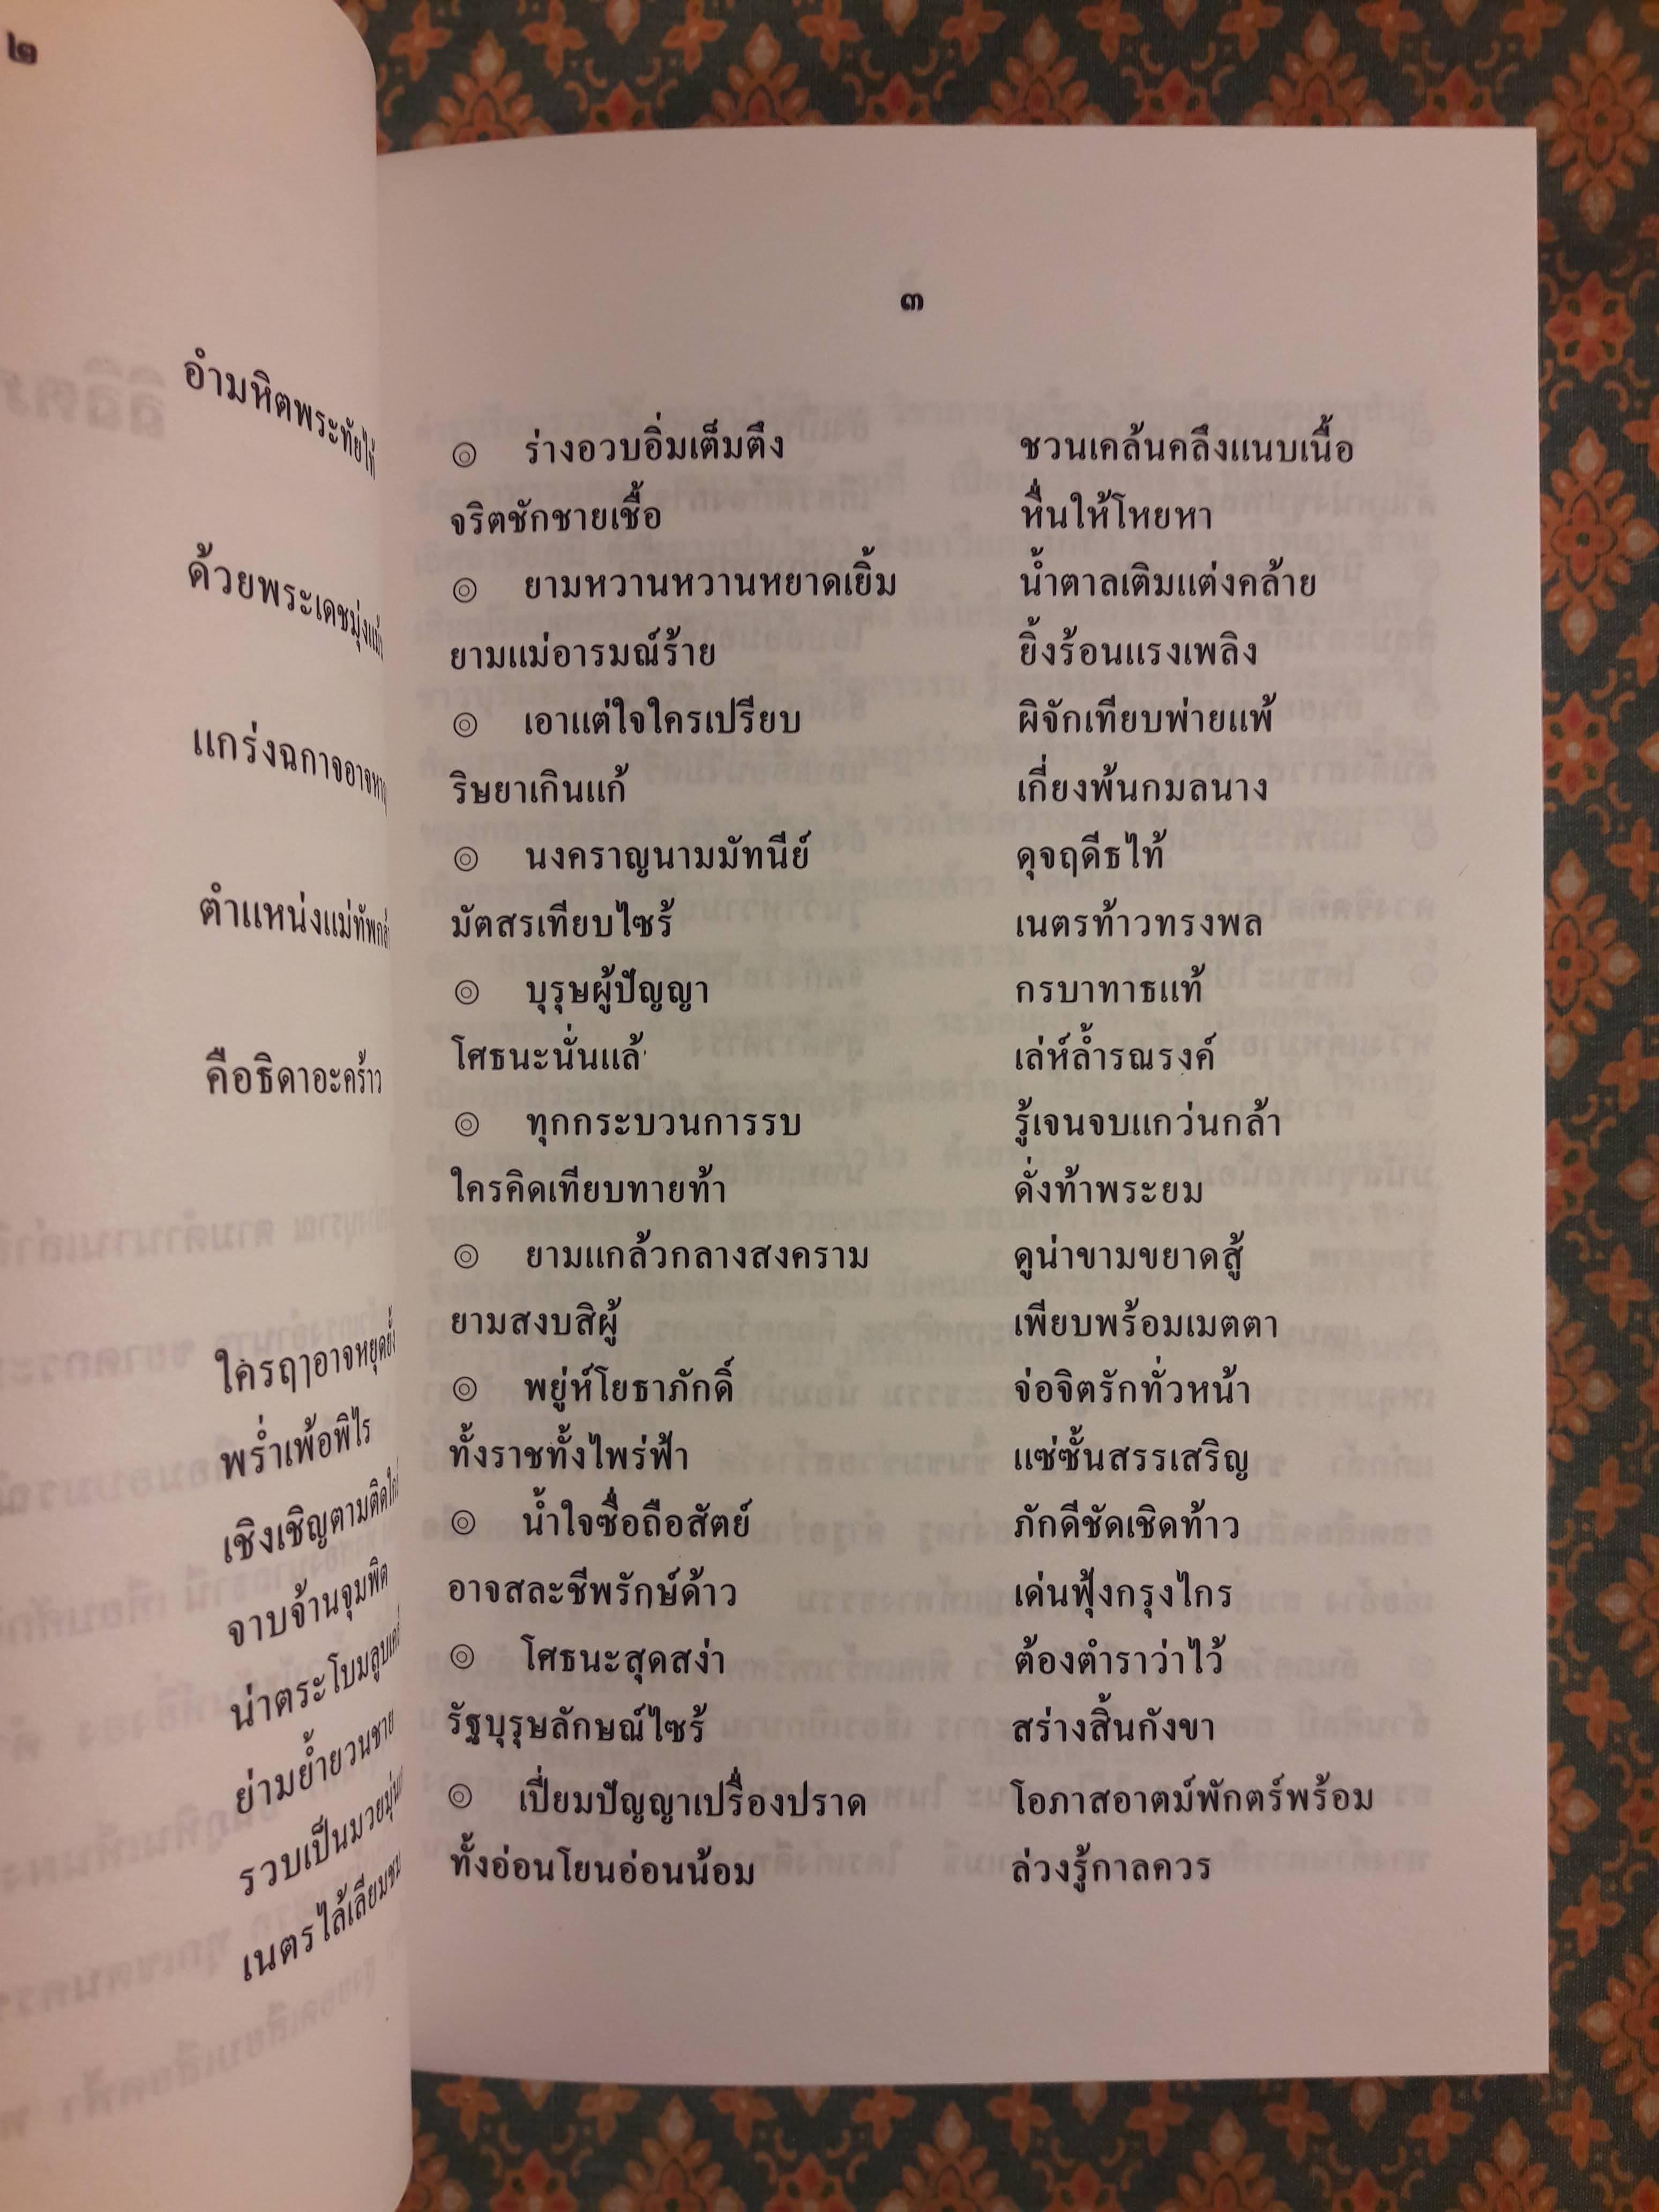 ๒
อำมหิตพระทัยไท้
ด้วยพระเดชมุ่ง
แกร่งฉกาจอาจหาญ
ตำแหน่งแม่ทัพ
คือธิดาอะคร้าว
ใครฤๅอาจหยุดยั้ง
พร่ำเพ้อพิไร
เชิงเชิญตามติดใกล้
จาบจ้านจุมพิต
น่าตระโบมลูบ
ย่ามย้ำยวนชาย
รวบเป็นมวยมุ่น
เนตรไล้เลียมชม
๓
๏ ร่างอวบอิ่มเต็มตึง ชวนเคล้นคลึงแนบเนื้อ
จริตชักชายเชื้อ หื่นให้โหยหา
๏ ยามหวานหวานหยาดเยิ้ม น้ำตาลเติมแต่งคล้าย
ยามแม่อารมณ์ร้าย ยิ้งร้อนแรงเพลิง
๏ เอาแต่ใจใครเปรียบ ผิจักเทียบพ่ายแพ้
ริษยาเกินแก้ เกี่ยงพ้นกมลนาง
๏ นงคราญนามมัทนีย์ ดุจฤดีธไท้
มัตสรเทียบไซร้ เนตรท้าวทรงพล
๏ บุรุษผู้ปัญญา กรบาทาธแท้
โศธนะนั่นแล้ เล่ห์ล้ำรณรงค์
๏ ทุกกระบวนการรบ รู้เจนจบแกว่นกล้า
ใครคิดเทียบทายท้า ดั่งท้าพระยม
๏ ยามแกล้วกลางสงคราม ดูน่าขามขยาดสู้
ยามสงบสิผู้ เพียบพร้อมเมตตา
๏ พยู่ห์โยธาภักดิ์ จ่อจิตรักทั่วหน้า
ทั้งราชทั้งไพร่ฟ้า แซ่ซั้นสรรเสริญ
๏ น้ำใจซื่อถือสัตย์ ภักดีชัดเชิดท้าว
อาจสละชีพรักษ์ด้าว เด่นฟุ้งกรุงไกร
๏ โศธนะสุดสง่า ต้องตำราว่าไว้
รัฐบุรุษลักษณ์ไซร้ สร่างสิ้นกังขา
๏ เปี่ยมปัญญาเปรื่องปราด โอภาสอาตม์พักตร์พร้อม
ทั้งอ่อนโยนอ่อนน้อม ล่วงรู้กาลควร